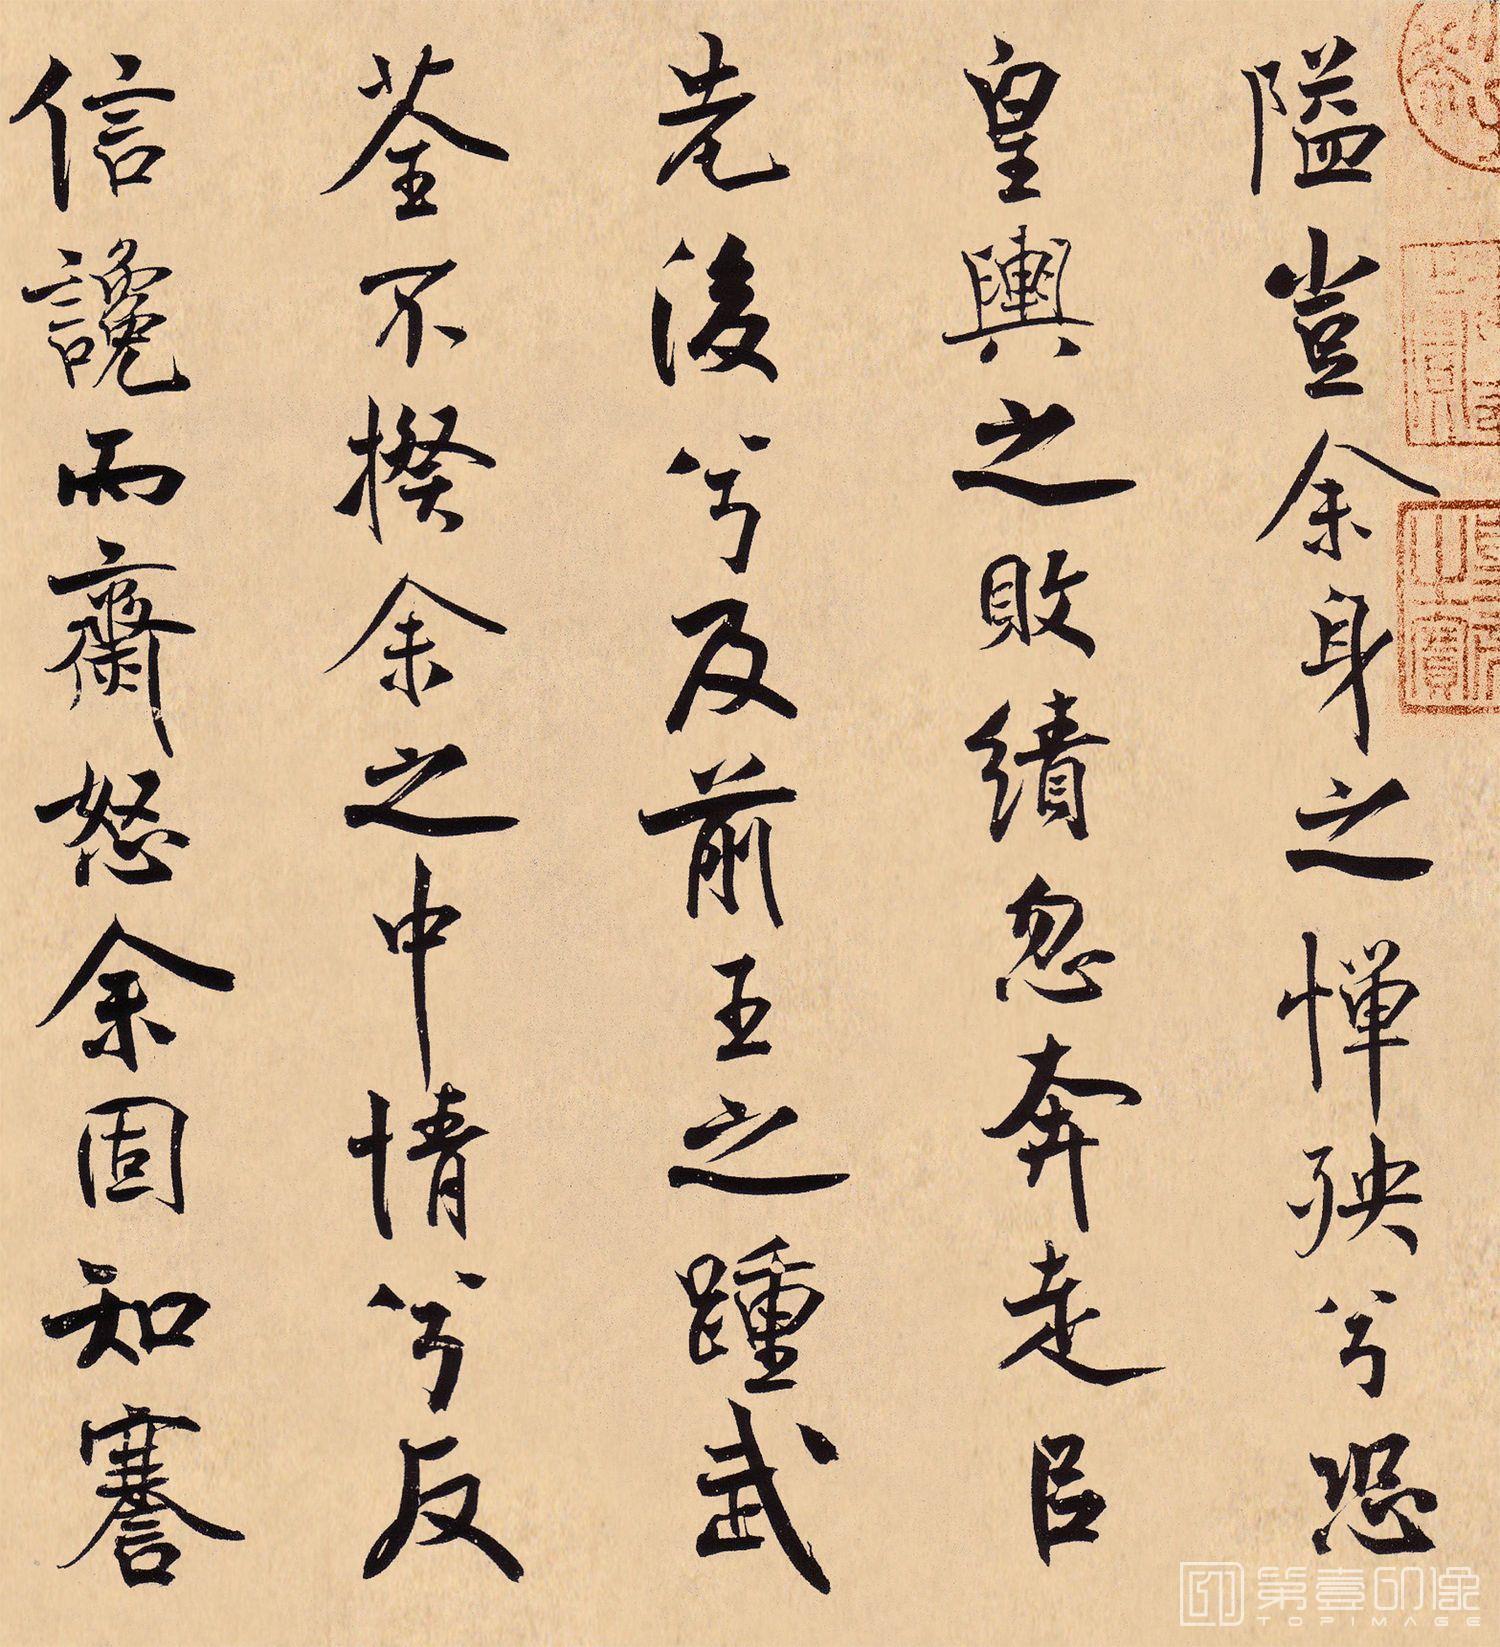 隘豈余身之憚殃兮恐
皇輿之敗績忽奔走㠯
先後兮及前王之踵武
荃不揆余之中情兮反
信讒而齌怒余固知謇
第壹印像
TOPIMAGE